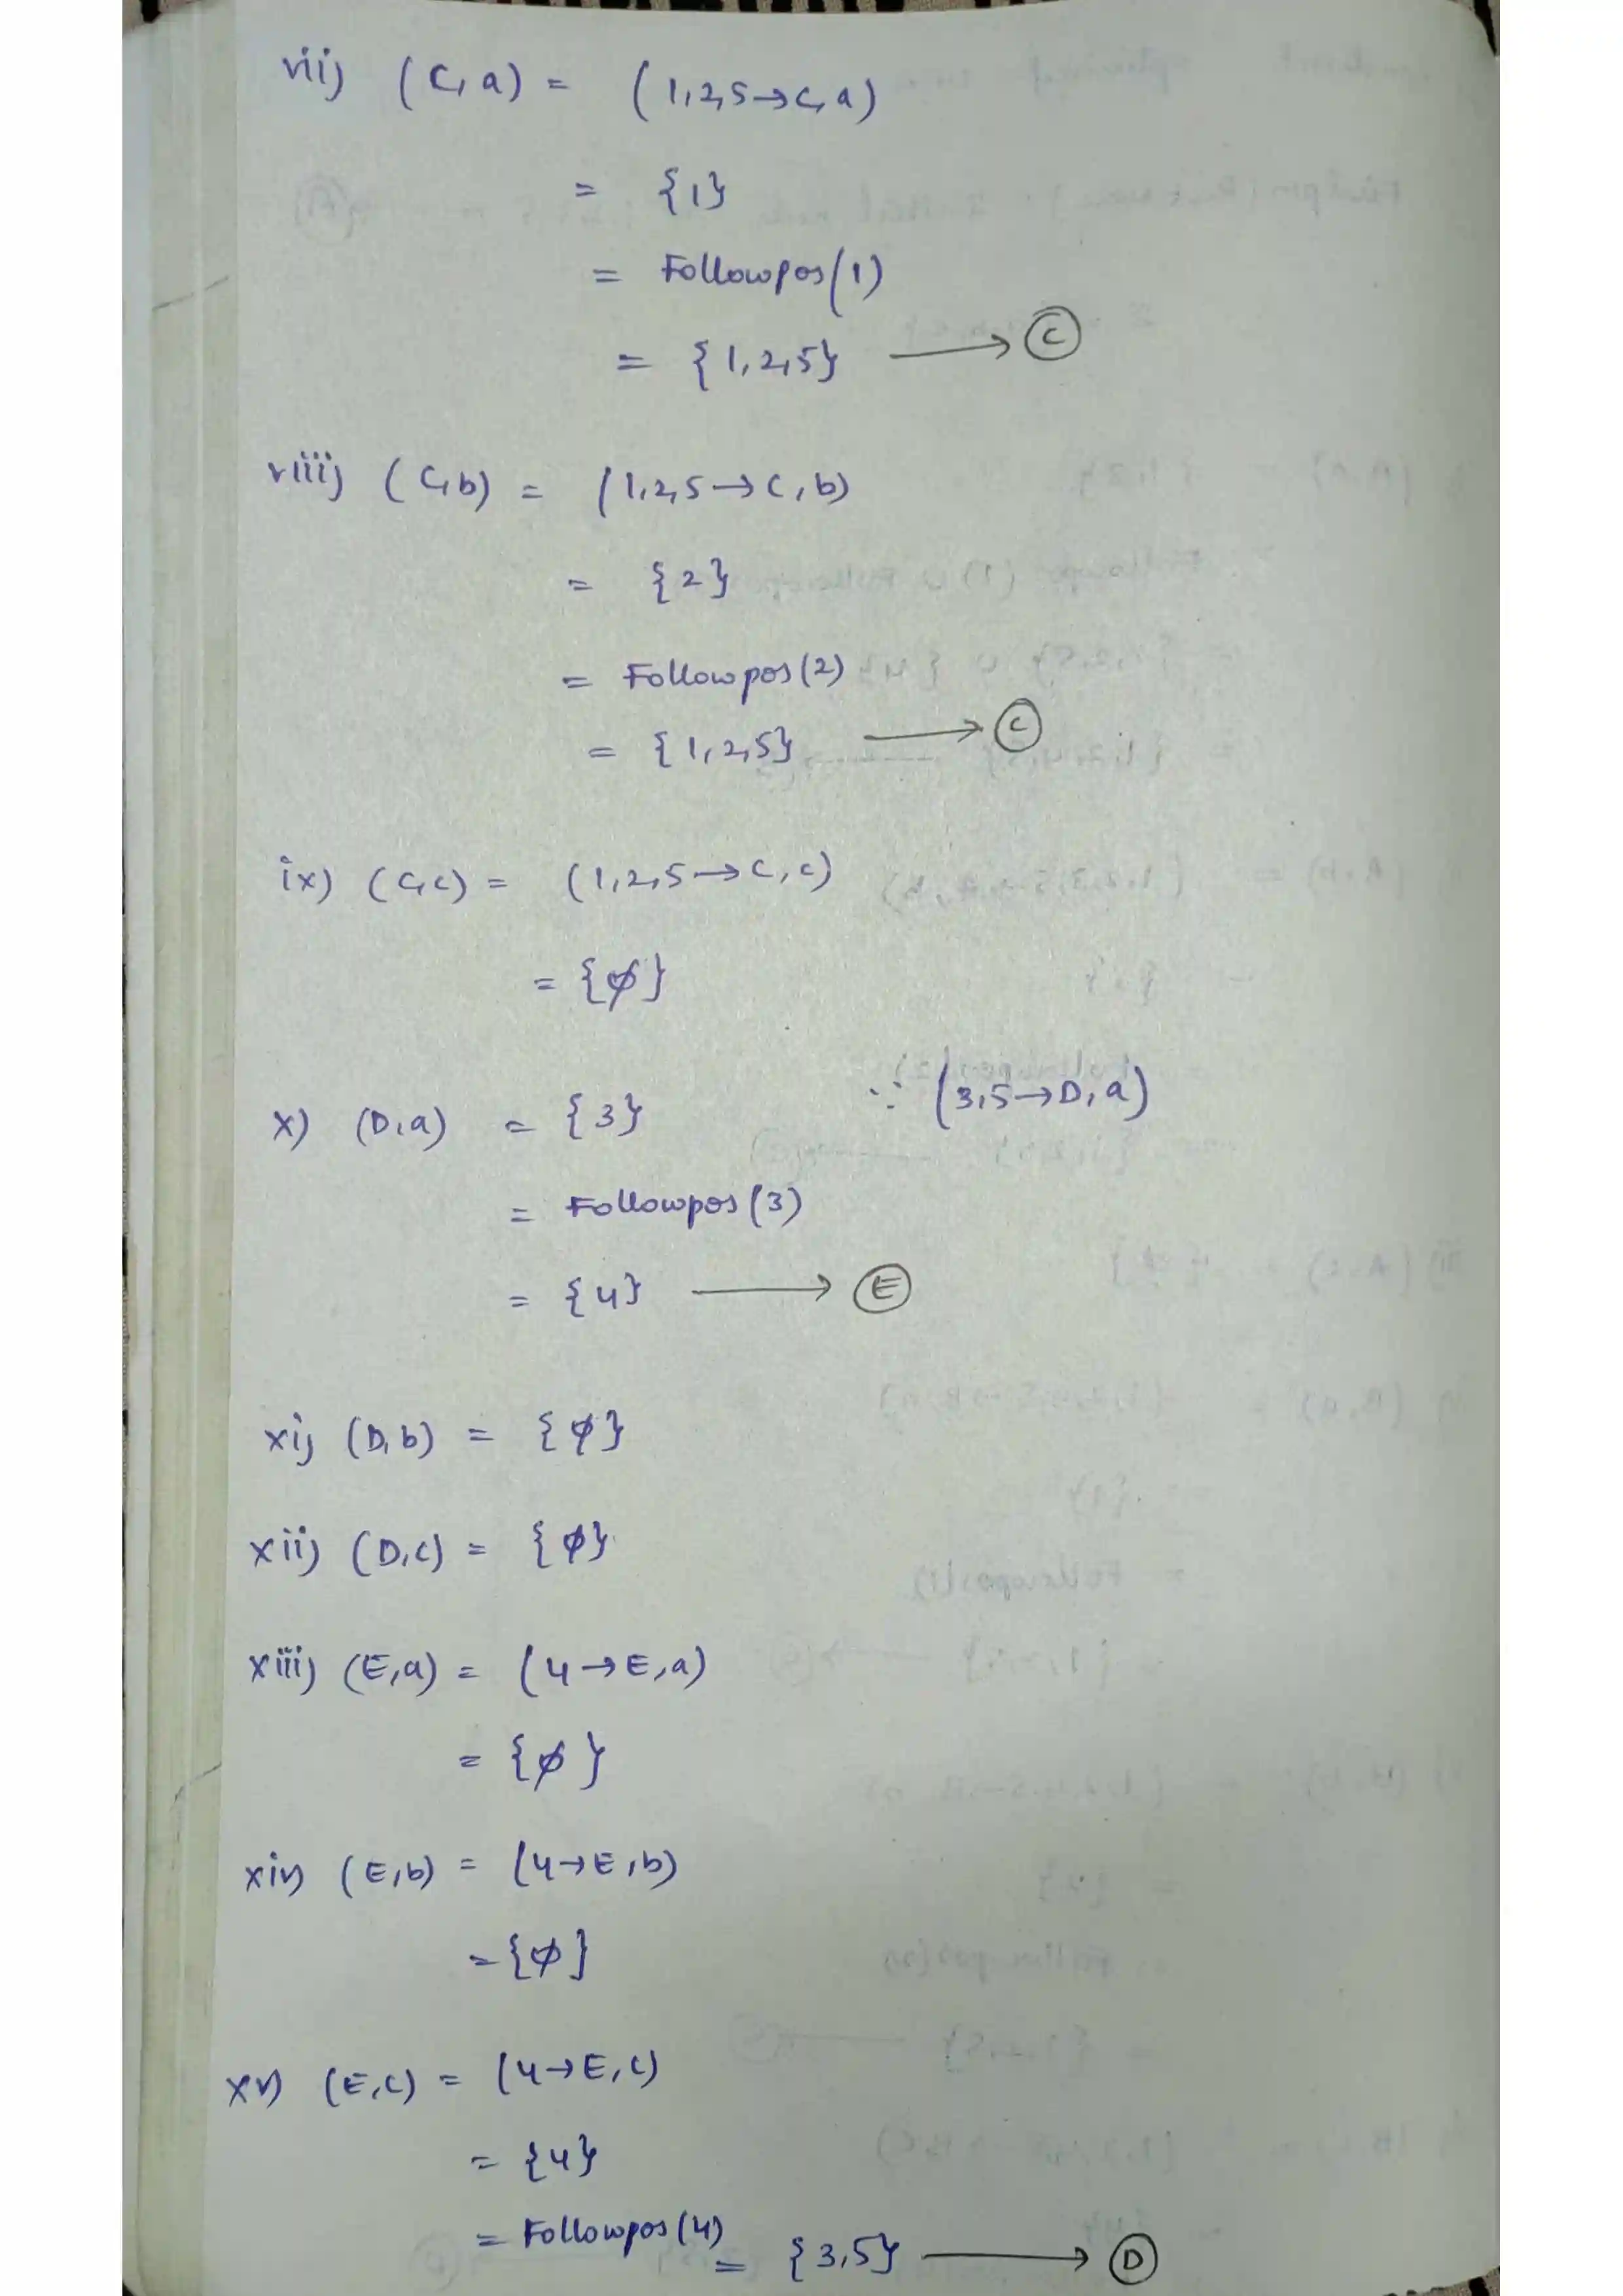 vii) (C, a) = (1,2,5→C, a)
= {1}
= Followpos(1)
= {1,2,5} ⟶ C
viii) (C, b) = (1,2,5→C, b)
= {2}
= Followpos(2)
= {1,2,5} ⟶ C
ix) (C, c) = (1,2,5→C, c)
= {ϕ}
x) (D, a) = {3} ∵ (3,5→D, a)
= Followpos(3)
= {4} ⟶ E
xi) (D, b) = {ϕ}
xii) (D, c) = {ϕ}
xiii) (E, a) = (4→E, a)
= {ϕ}
xiv) (E, b) = (4→E, b)
= {ϕ}
xv) (E, c) = (4→E, c)
= {4}
= Followpos(4)
= {3,5} ⟶ D